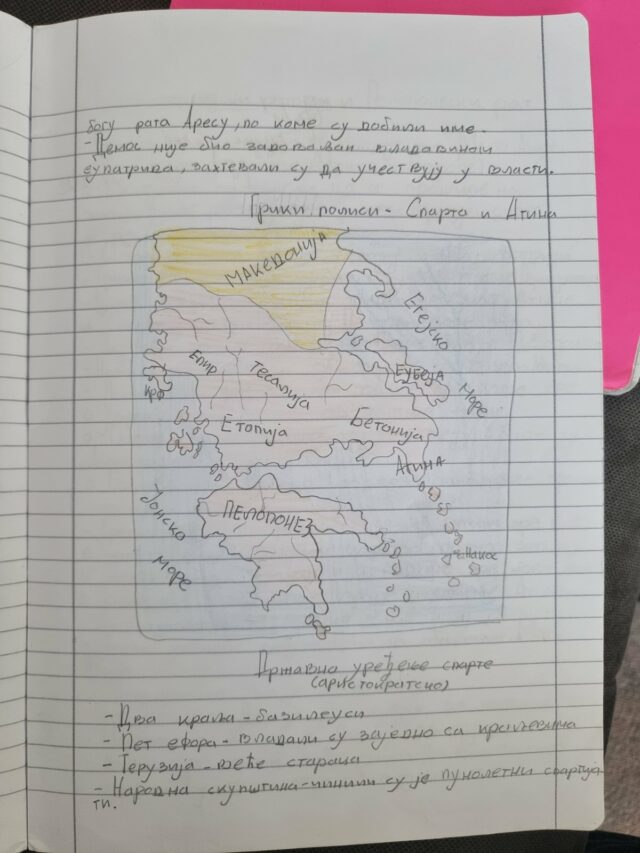 богу рата Аресу, по коме су добили име.
- Демос није био задовољан владавином
еупатрида, захтевали су да учествују у власти.
Грики полиси - Спарта и Атина
МАКЕДОНИЈА
Егејско
Море
Епир
Тесалија
ЕУБЕЈА
Крф
Етолија
Бетонија
Атина
Јонско
Море
ПЕЛОПОНЕЗ
Државна уређење спарте
(аристократско)
- Два краља - базилеуси
- Пет ефора - владали су заједно са краљевима
- Герузија - веће стараца
- Народна скупштина - чинили су је пунолетни спартија
ти.